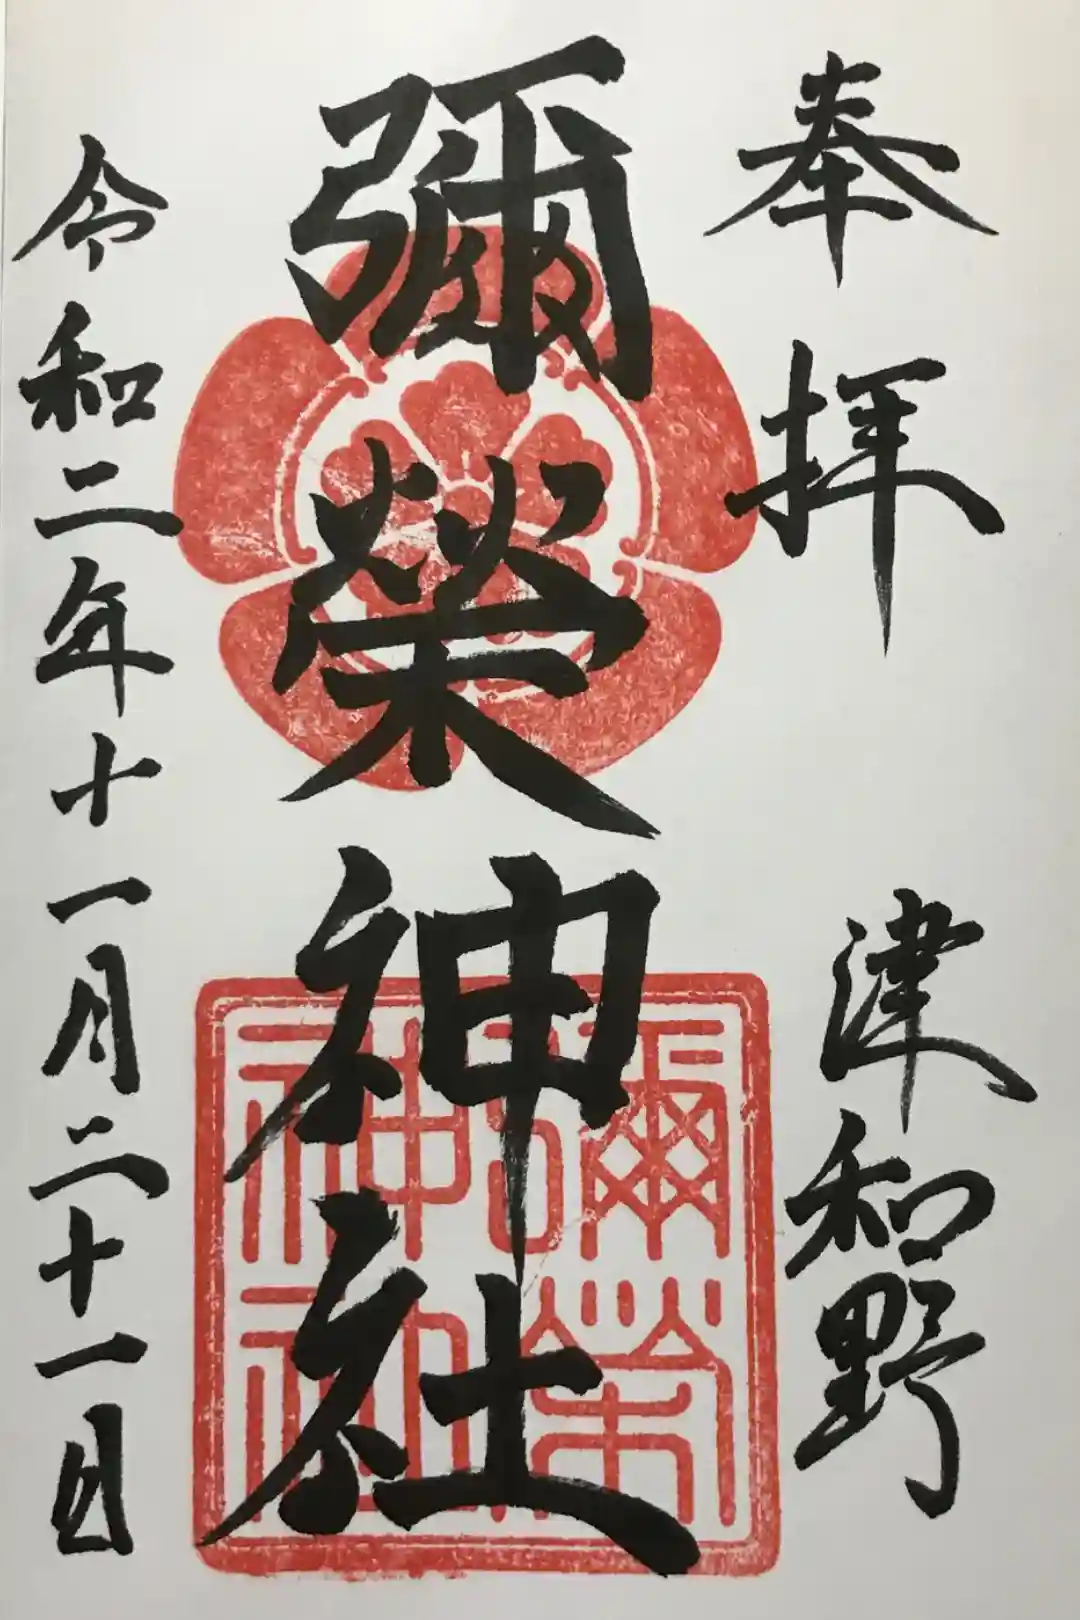 奉拝 津和野
彌榮神社
令和二年十一月二十一日
彌榮
神社